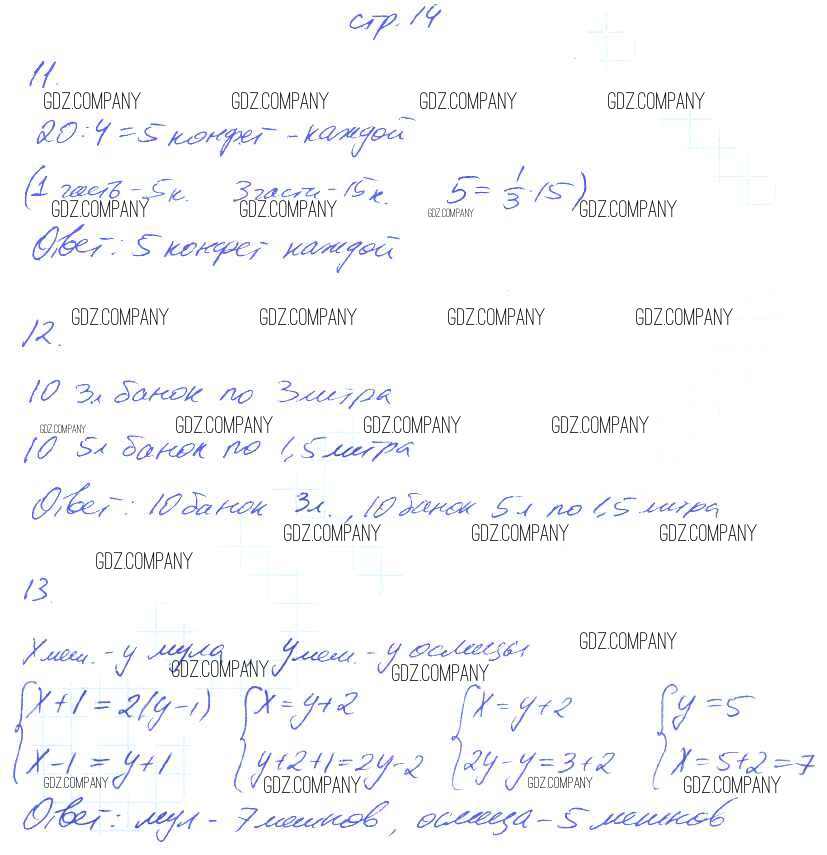 стр. 14
11.
GDZ.COMPANY GDZ.COMPANY GDZ.COMPANY GDZ.COMPANY
20:4=5 конфет - каждой
(1 часть - 5 к. 3 части - 15 к. 5 = 1/3 · 15)
GDZ.COMPANY GDZ.COMPANY GDZ.COMPANY GDZ.COMPANY
Ответ: 5 конфет каждой
GDZ.COMPANY GDZ.COMPANY GDZ.COMPANY GDZ.COMPANY
12.
10 3л банок по 3 литра
GDZ.COMPANY GDZ.COMPANY GDZ.COMPANY GDZ.COMPANY
10 5л банок по 1,5 литра
Ответ: 10 банок 3л., 10 банок 5л по 1,5 литра
GDZ.COMPANY GDZ.COMPANY GDZ.COMPANY
GDZ.COMPANY
13.
GDZ.COMPANY
X меш. - у мула, y меш. - у ослицы
GDZ.COMPANY GDZ.COMPANY
{X+1=2(y-1) {X=y+2 {X=y+2 {y=5
X-1=y+1 y+2+1=2y-2 2y-y=3+2 X=5+2=7
GDZ.COMPANY GDZ.COMPANY GDZ.COMPANY GDZ.COMPANY
Ответ: мул - 7 мешков, ослица - 5 мешков